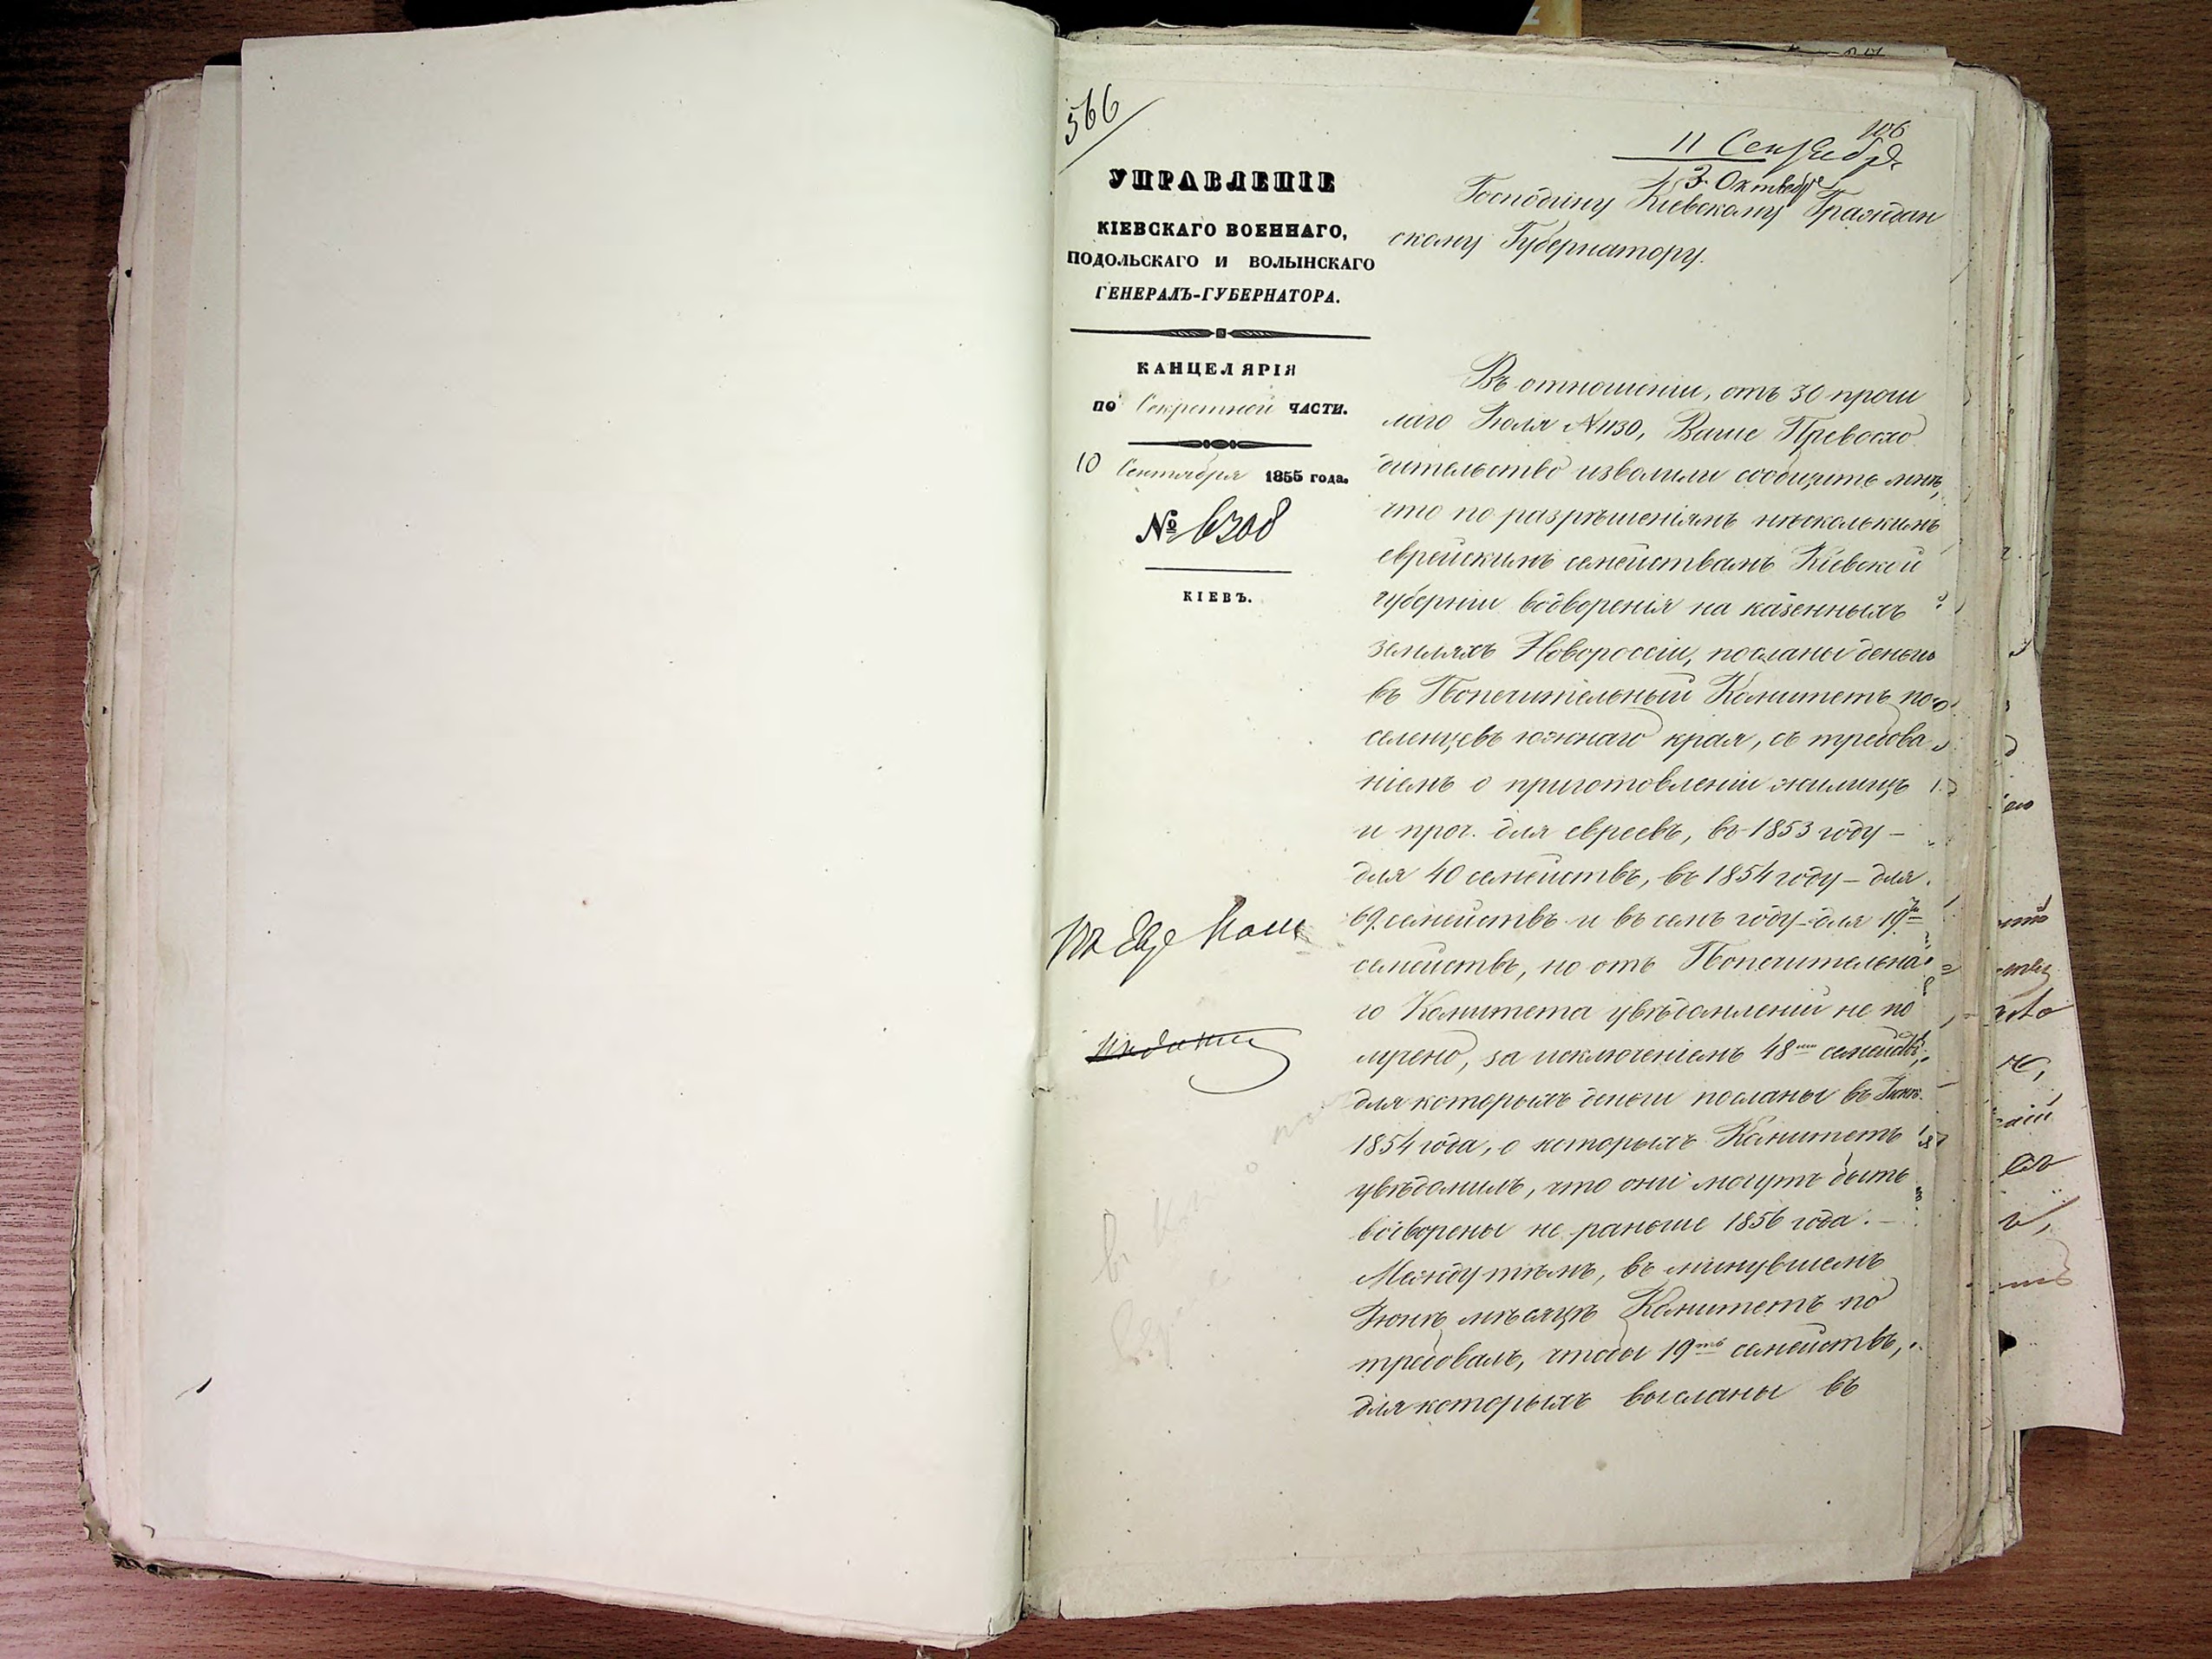 566
106
11 Сентября
3 Октября
УПРАВЛЕНІЕ
КІЕВСКАГО ВОЕННАГО,
ПОДОЛЬСКАГО И ВОЛЫНСКАГО
ГЕНЕРАЛЪ-ГУБЕРНАТОРА.
КАНЦЕЛЯРІЯ
ПО Секретной ЧАСТИ.
10 Сентября 1855 года.
№ 6308
КІЕВЪ.
Господину Кіевскому Граждан
скому Губернатору.
Въ отношеніи, отъ 30 прош
лаго Іюля №1130, Ваше Превосхо
дительство изволили сообщить мнѣ,
что по разрѣшеніямъ нѣсколькимъ
еврейскимъ семействамъ Кіевской
губерніи водворенія на казенныхъ
земляхъ Новороссіи, посланы деньги
въ Попечительный Комитетъ по
селенцевъ южнаго края, съ требова
ніемъ о приготовленіи жилищъ
и проч. для евреевъ, въ 1853 году –
для 40 семействъ, въ 1854 году – для
69 семействъ и въ семъ году – для 19ти
семействъ, но отъ Попечительна
го Комитета увѣдомленій не по
лучено, за исключеніемъ 48ми семействъ,
для которыхъ деньги посланы въ Іюнѣ
1854 года, о которыхъ Комитетъ
увѣдомилъ, что они могутъ быть
водворены не раньше 1856 года. –
Между тѣмъ, въ минувшемъ
Іюнѣ мѣсяцѣ Комитетъ по
требовалъ, чтобы 19ть семействъ,
для которыхъ высланы въ